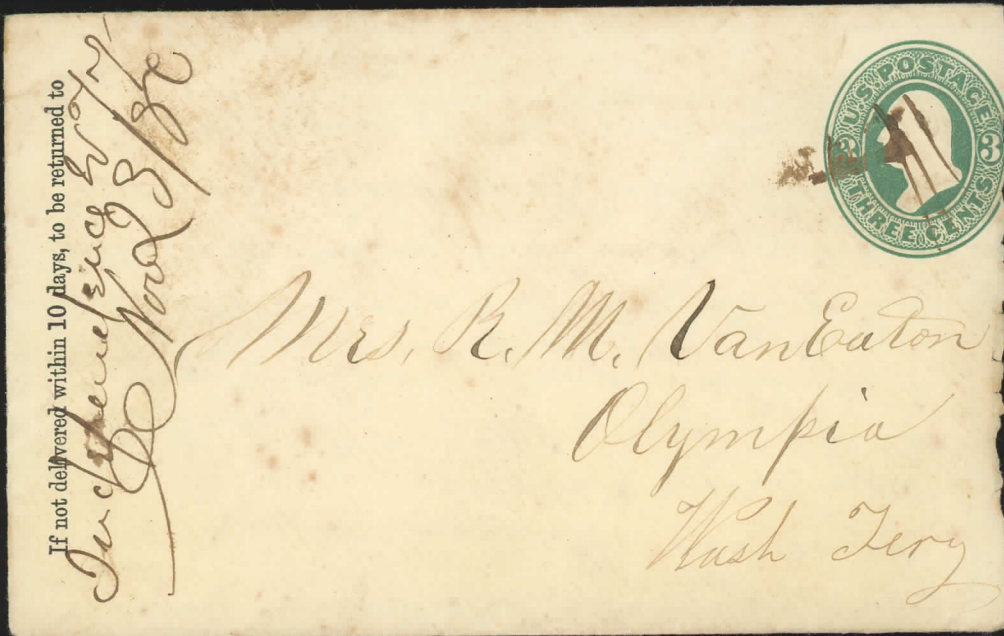 If not delivered within 10 days, to be returned to
Independence W. T.
Nov 8/80
U.S. POSTAGE
3 3
THREE CENTS
Mrs. R. M. Van Eaton
Olympia
Wash Tery